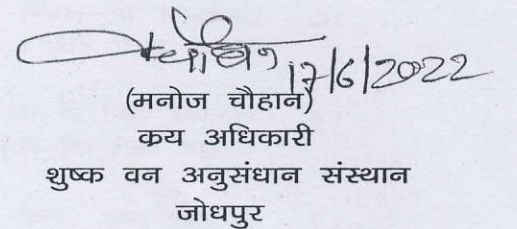 17/6/2022
(मनोज चौहान)
क्रय अधिकारी
शुष्क वन अनुसंधान संस्थान
जोधपुर